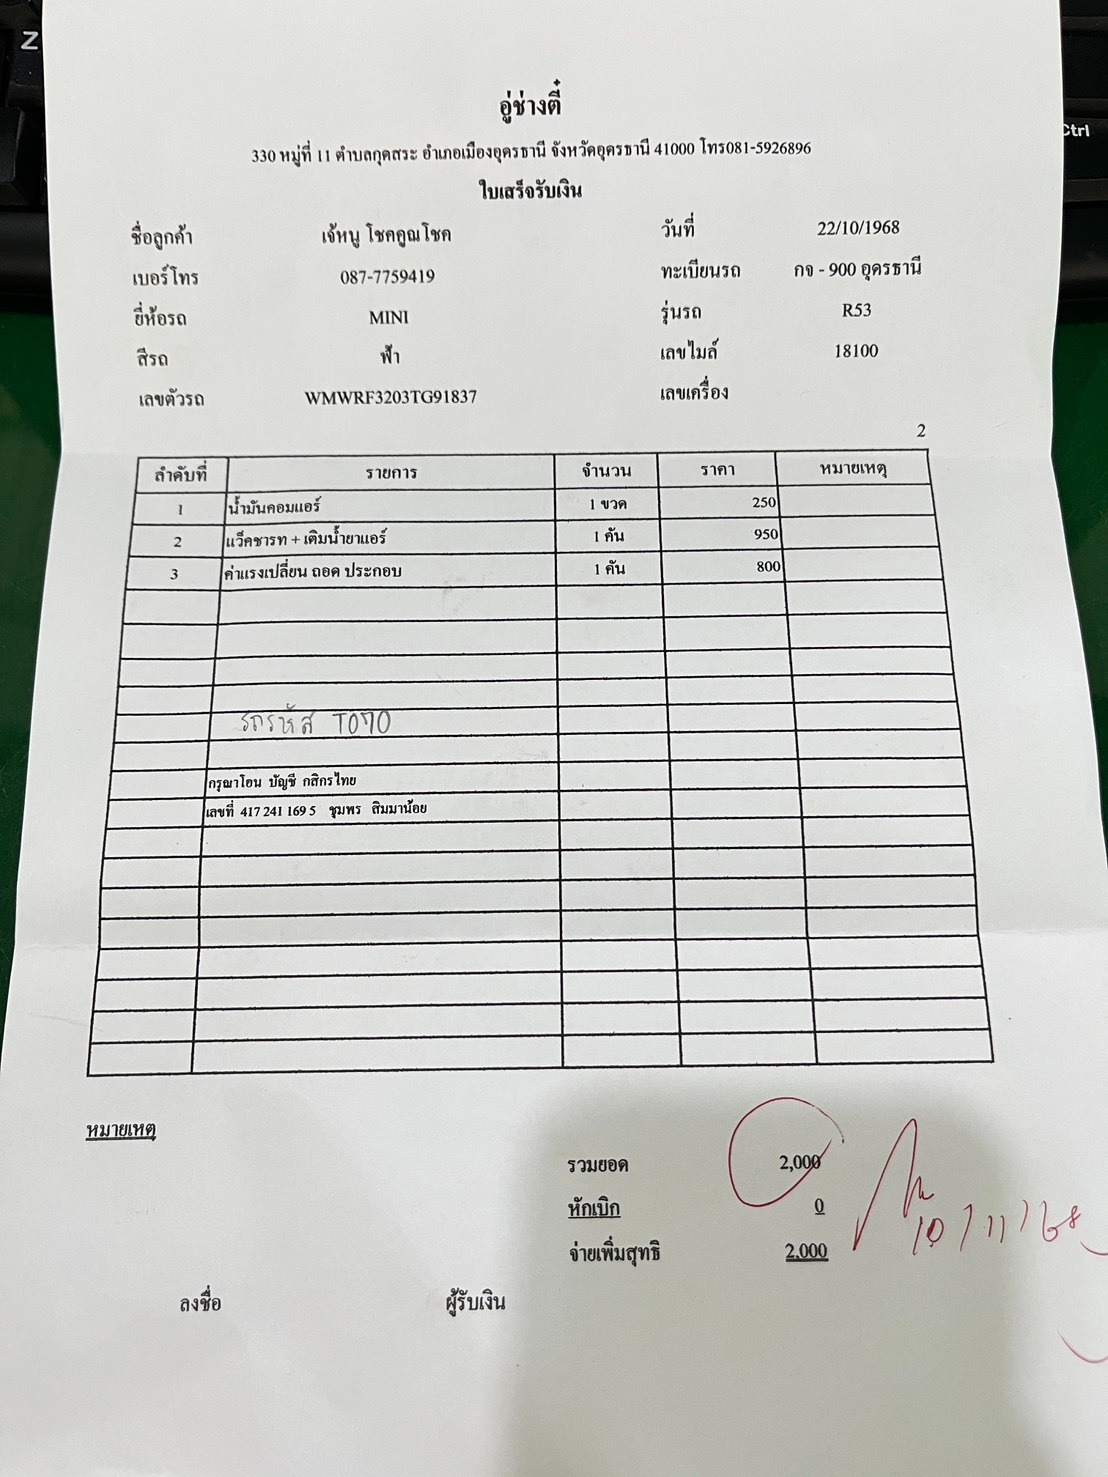 Z
Ctrl
อู่ช่างตี๋
330 หมู่ที่ 11 ตำบลกุดสระ อำเภอเมืองอุดรธานี จังหวัดอุดรธานี 41000 โทร081-5926896
ใบเสร็จรับเงิน
ชื่อลูกค้า เจ้หนู โชคคูณโชค วันที่ 22/10/1968
เบอร์โทร 087-7759419 ทะเบียนรถ กจ - 900 อุดรธานี
ยี่ห้อรถ MINI รุ่นรถ R53
สีรถ ฟ้า เลขไมล์ 18100
เลขตัวรถ WMWRF3203TG91837 เลขเครื่อง
2
ลำดับที่ รายการ จำนวน ราคา หมายเหตุ
1 น้ำมันคอมแอร์ 1 ขวด 250
2 แว็คชารท + เติมน้ำยาแอร์ 1 คัน 950
3 ค่าแรงเปลี่ยน ถอด ประกอบ 1 คัน 800
รถรหัส T070
กรุณาโอน บัญชี กสิกรไทย
เลขที่ 417 241 169 5 ชุมพร สิมมาน้อย
หมายเหตุ
รวมยอด 2,000
หักเบิก 0
จ่ายเพิ่มสุทธิ 2,000
10/11/68
ลงชื่อ ผู้รับเงิน